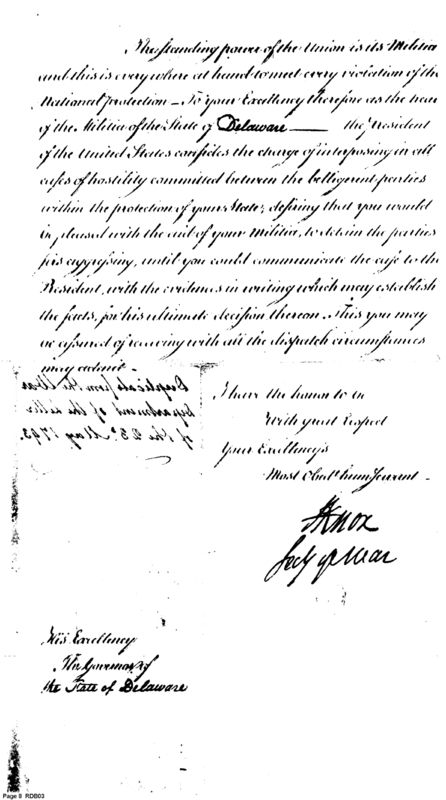 The standing power of the Union is its Militia
and this is every where at hand to meet every violation of the
National protection — To your Excellency therefore as the head
of the Militia of the State of Delaware —— the President
of the United States confides the charge of interposing in all
cases of hostility committed between the belligerent parties
within the protection of your State; desiring that you would
be pleased with the aid of your Militia, to detain the parties
first aggressing, until you could communicate the case to the
President, with the evidences in writing which may establish
the facts, for his ultimate decision thereon. This you may
be assured of receiving with all the dispatch circumstances
may admit.—
Duplicate from the War
Department of the letter
of the 23d. May 1793.
I have the honor to be
With great Respect
Your Excellency's
Most Obedt. humServant
HKnox
Secy of War
His Excellency
The Governor of
the State of Delaware
Page 8 RDB03